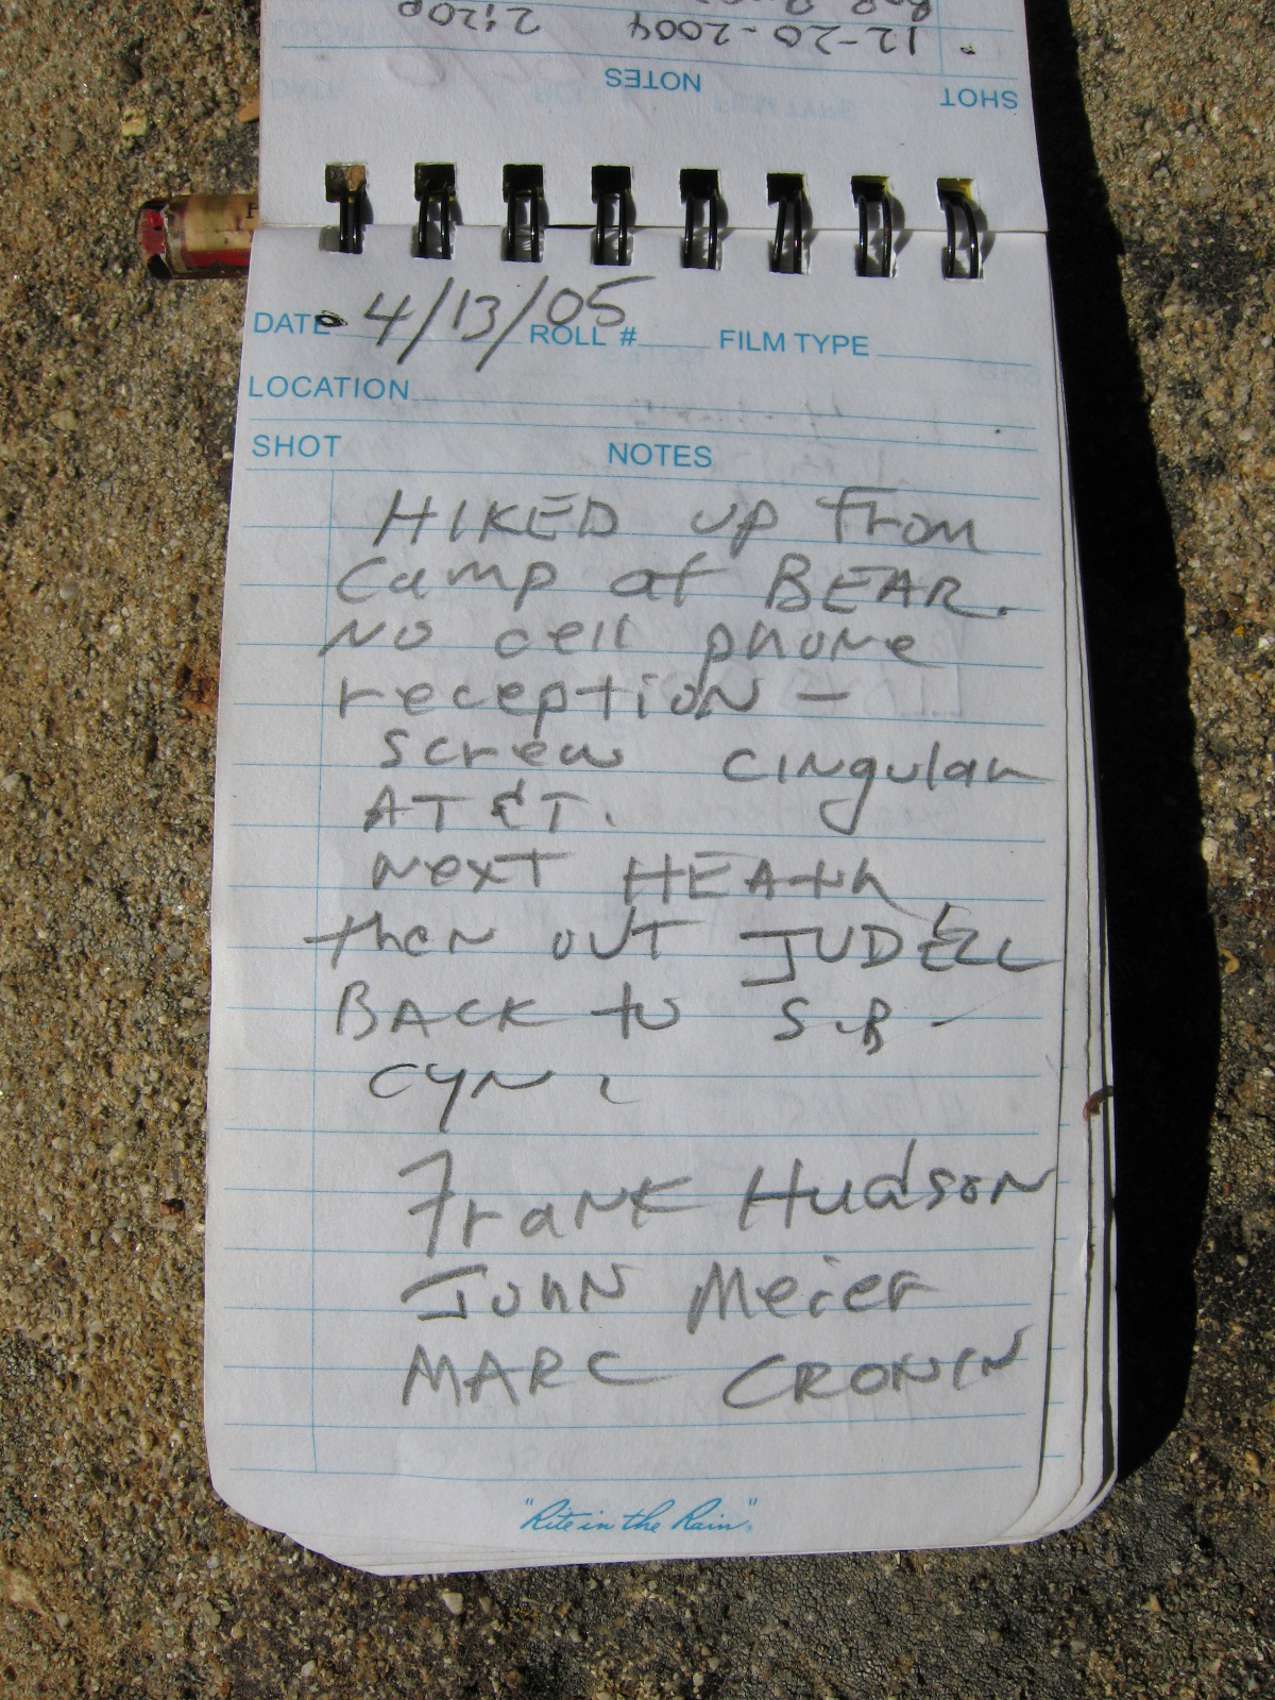 SHOT NOTES
12-20-2004 2:20p
DATE 4/13/05 ROLL # FILM TYPE
LOCATION
SHOT NOTES
HIKED up From
Camp at BEAR.
NO cell phone
reception -
screw cingular
AT&T.
Next HEAth
then out JUDELL
BACK to S.B-
CYN.
Frank Hudson
John Meier
MARC CRONIN
"Rite in the Rain"